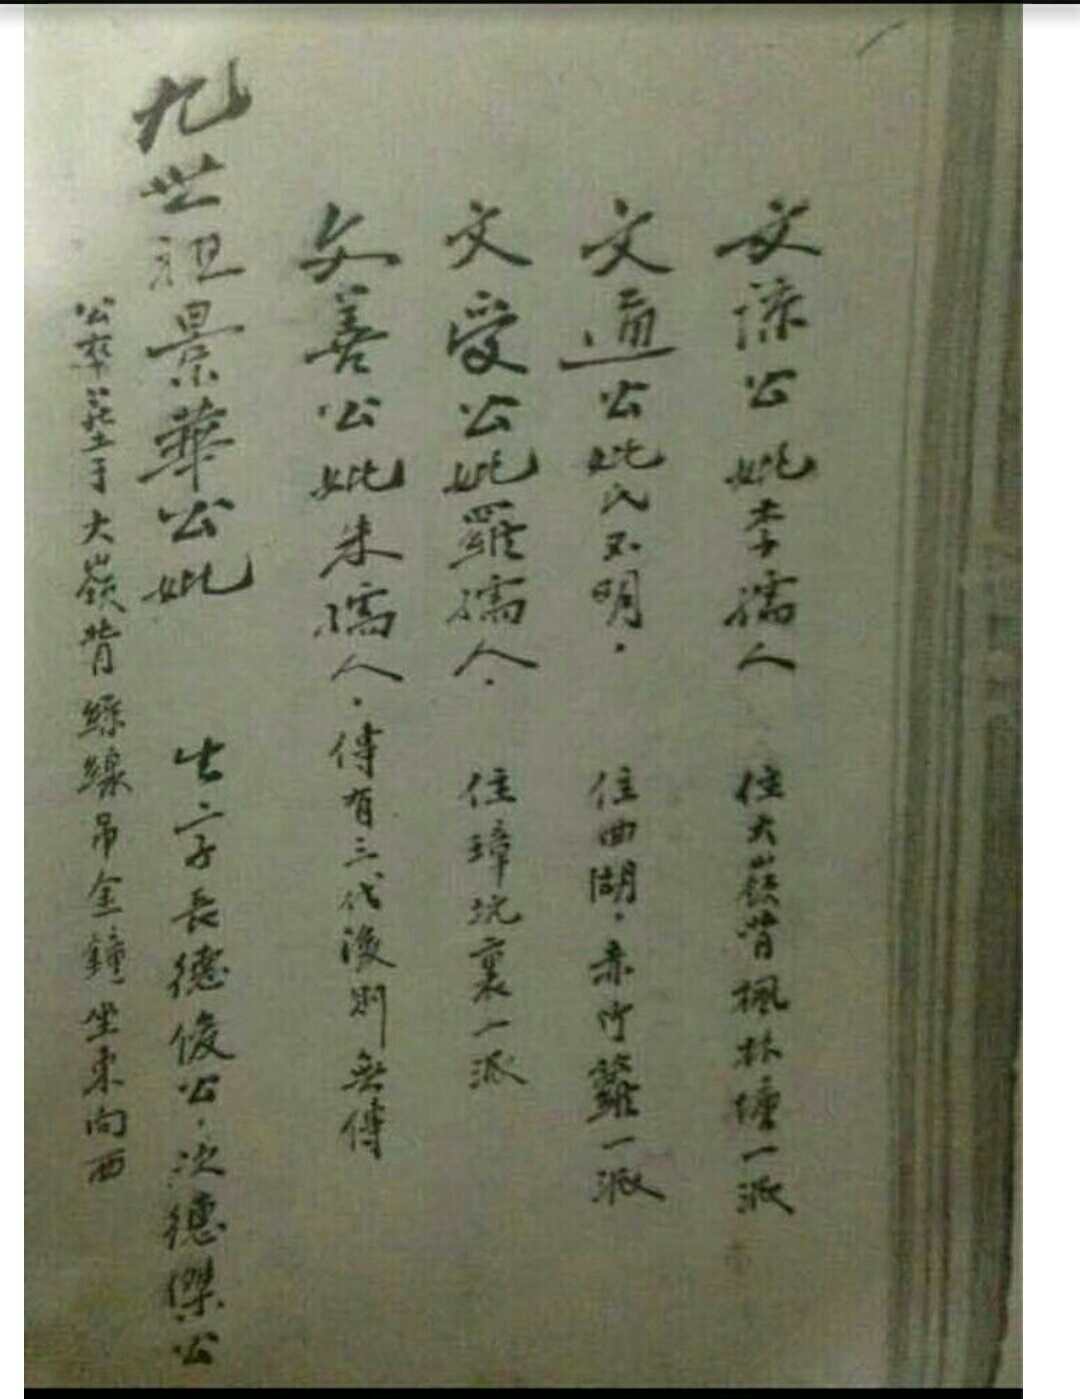 文深公妣李孺人 住大嶺背楓林塘一派
文通公妣氏不明. 住曲湖.赤竹籮一派
文受公妣羅孺人. 住璋坑裏一派
文善公妣朱孺人.傳有三代後則無傳
九世祖景華公妣 生二子長德俊公.次德傑公
公率葬于大嶺背絲線吊金鐘坐東向西